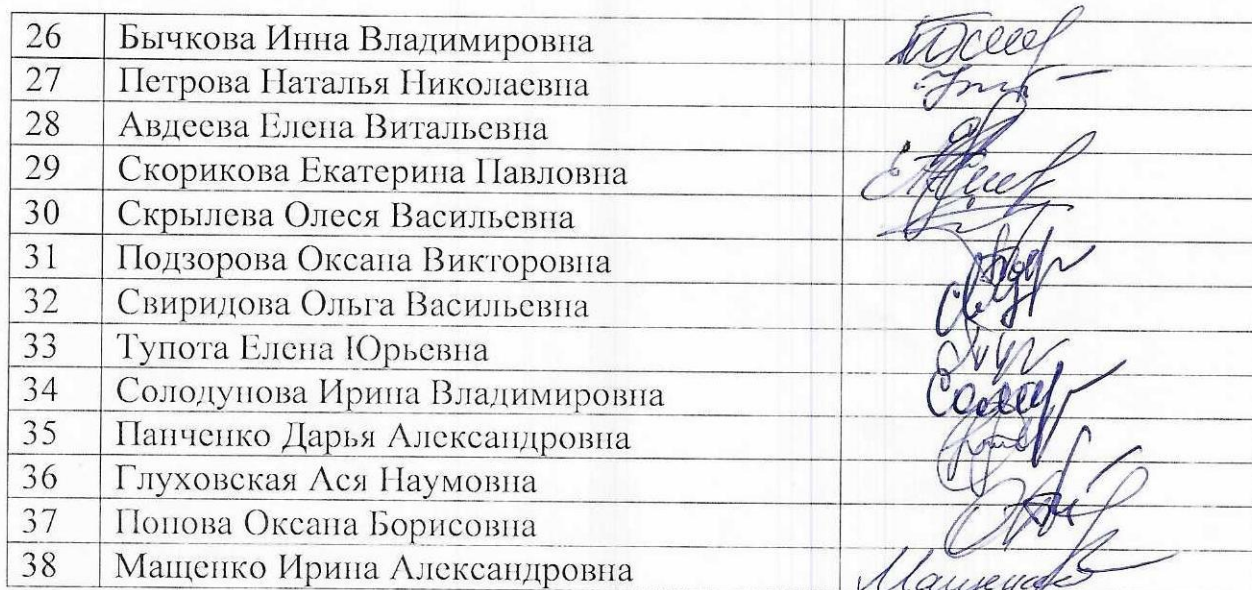 26 Бычкова Инна Владимировна
27 Петрова Наталья Николаевна
28 Авдеева Елена Витальевна
29 Скорикова Екатерина Павловна
30 Скрылева Олеся Васильевна
31 Подзорова Оксана Викторовна
32 Свиридова Ольга Васильевна
33 Тупота Елена Юрьевна
34 Солодунова Ирина Владимировна
35 Панченко Дарья Александровна
36 Глуховская Ася Наумовна
37 Попова Оксана Борисовна
38 Мащенко Ирина Александровна